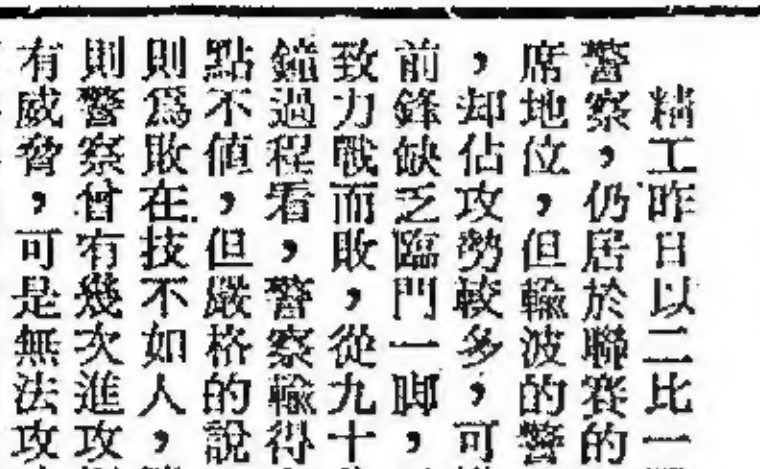 精工昨日以二比一
警察，仍居於聯賽的
席地位，但輸波的警
，却佔攻勢較多，可
前鋒缺乏臨門一脚，
致力戰而敗，從九十
鐘過程看，警察輸得
點不値，但嚴格的說
則爲敗在技不如人，
則警察曾有幾次進攻
有威脅，可是無法攻